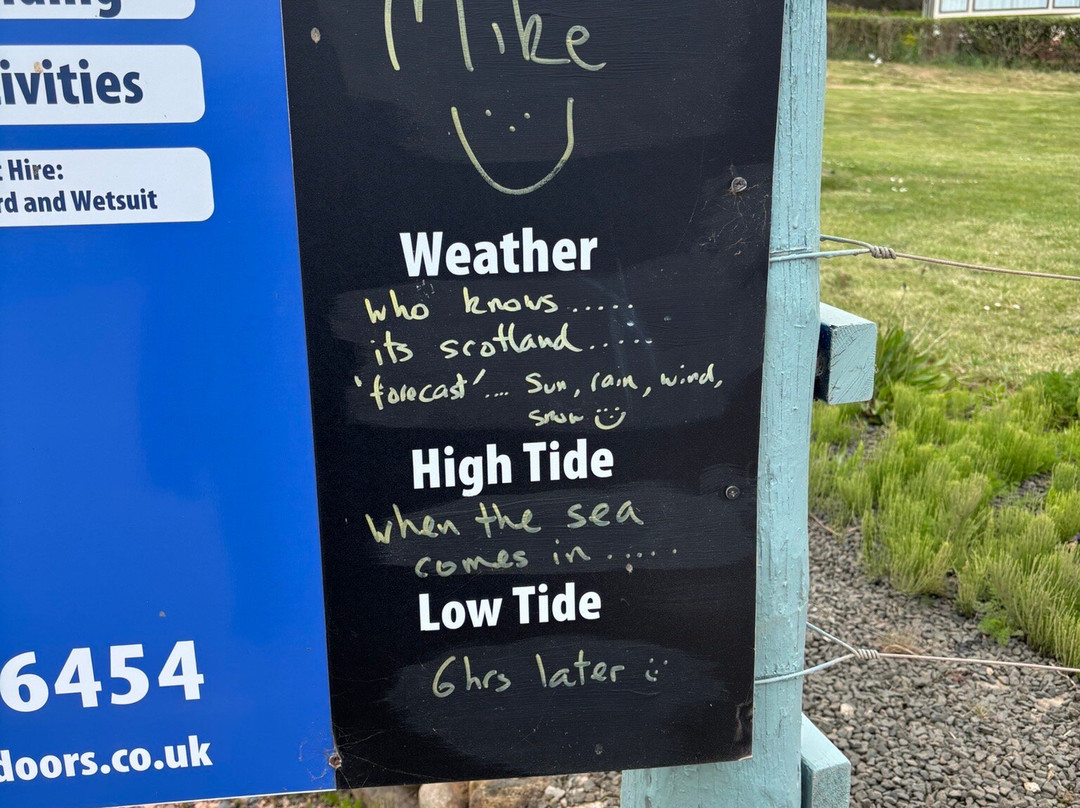 ivities
Hire:
rd and Wetsuit
6454
doors.co.uk
Mike
Weather
who knows.....
its scotland.....
'forecast'.... Sun, rain, wind,
snow
High Tide
when the sea
comes in.....
Low Tide
6hrs later